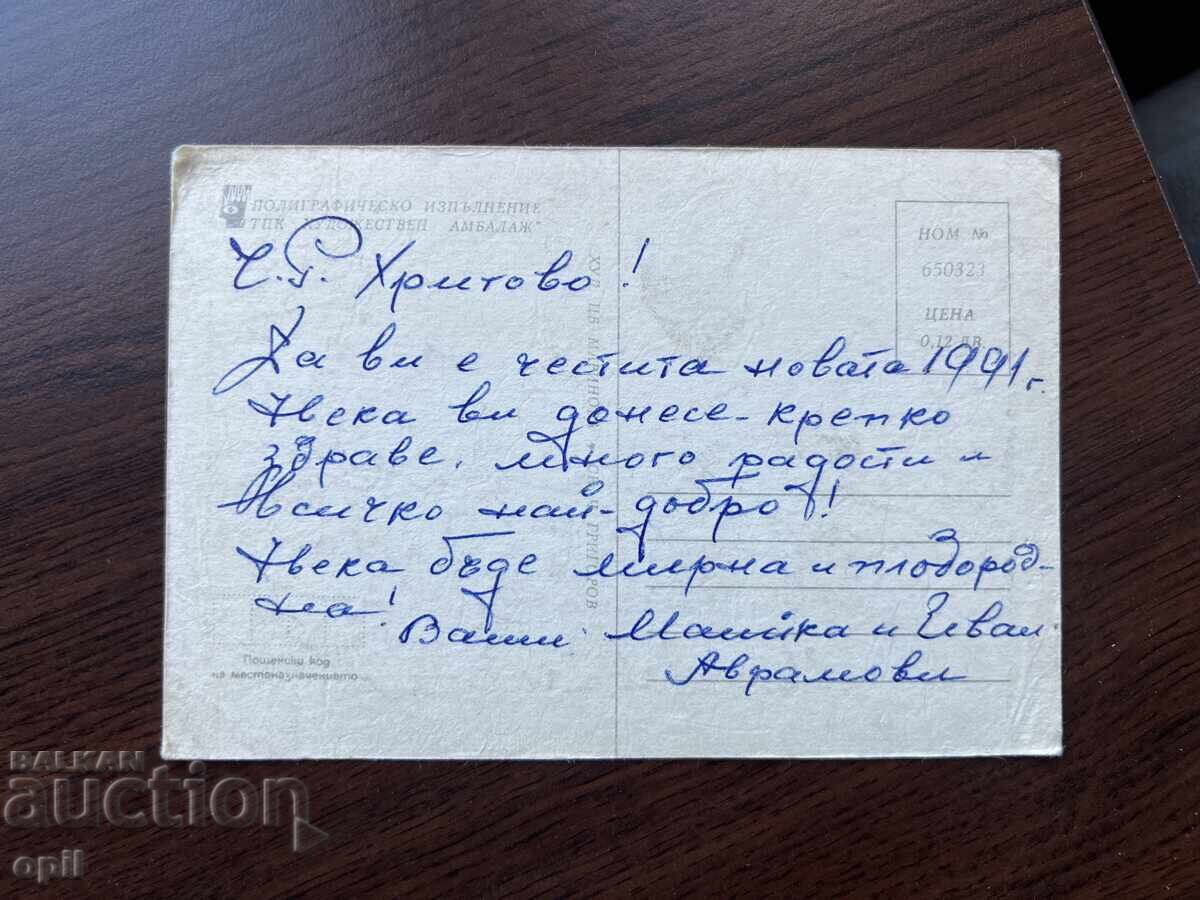 ПОЛИГРАФИЧЕСКО ИЗПЪЛНЕНИЕ
ТПК ХУДОЖЕСТВЕН АМБАЛАЖ"
Ч.Г. Христово!
Да ви е честита новата 1991 г.
Нека ви донесе - крепко
здраве, много радости и
всичко най-добро!
Нека бъде мирна и плодород-
на!
Ваши: Марийка и Иван
Аврамови
НОМ №
650323
ЦЕНА
0,12 ЛВ.
Пощенски код
на местоназначението
BALKAN
auction
opil